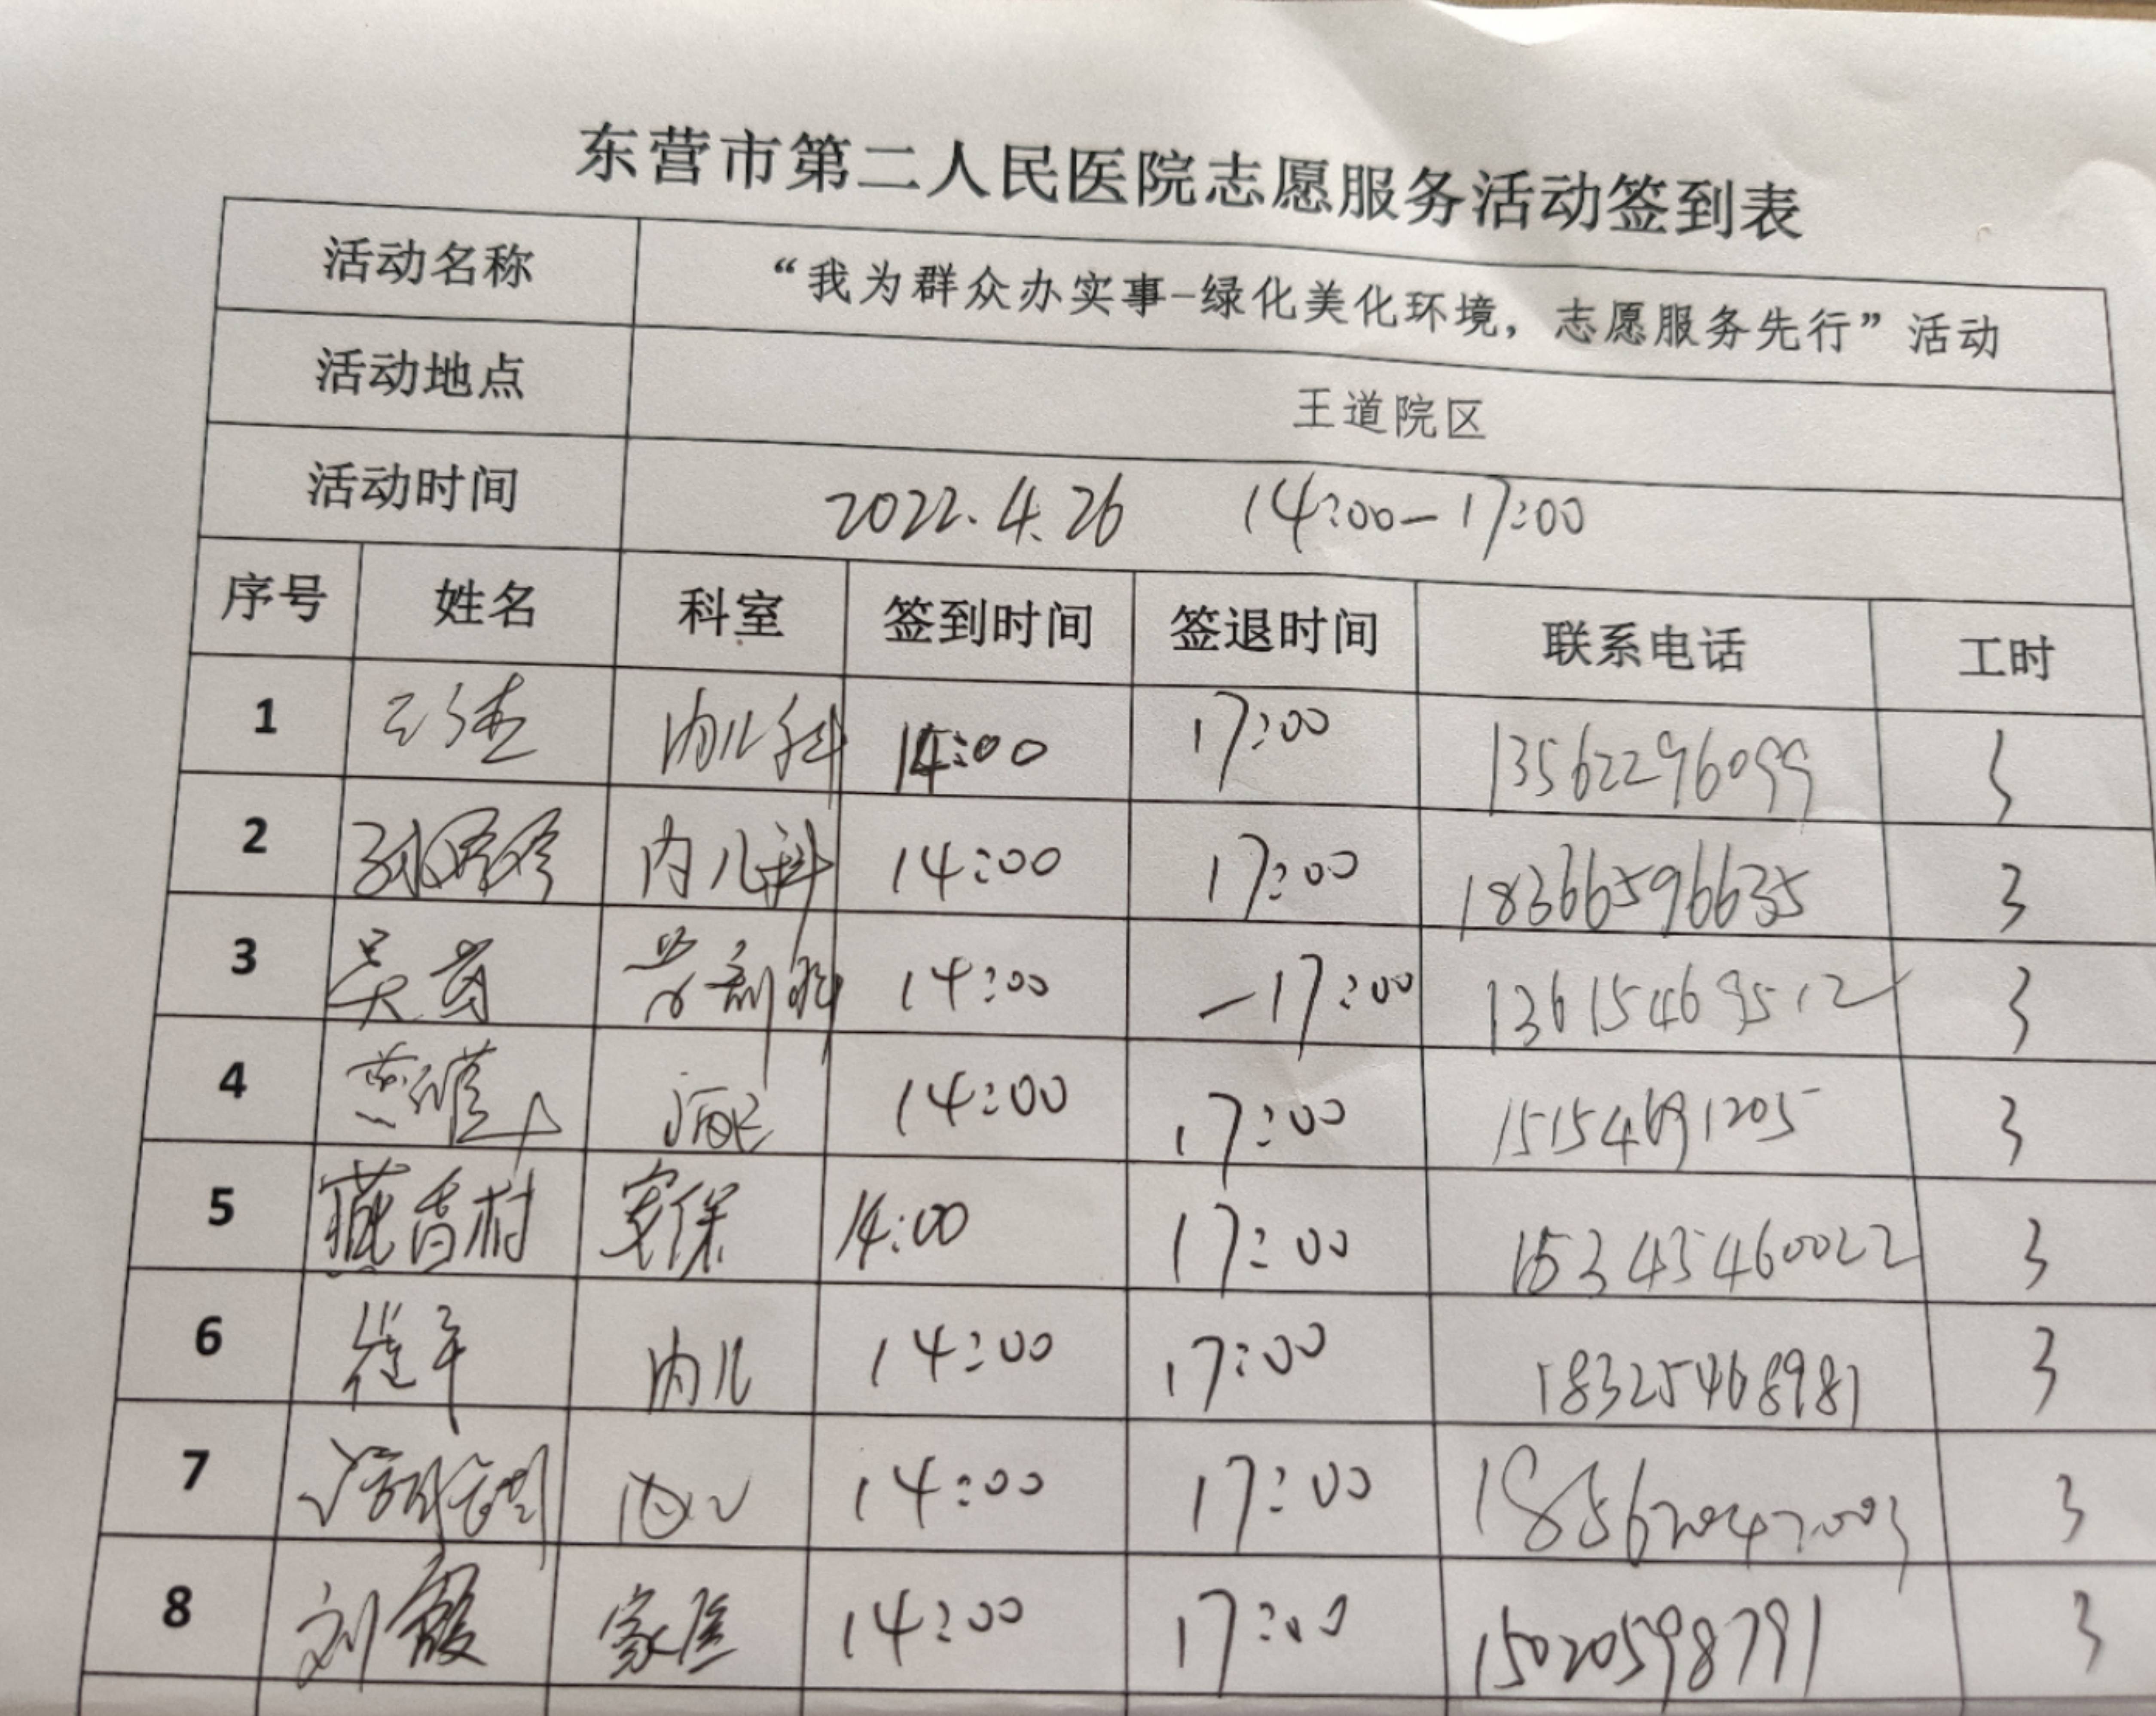 东营市第二人民医院志愿服务活动签到表
活动名称 “我为群众办实事-绿化美化环境，志愿服务先行”活动
活动地点 王道院区
活动时间 2022.4.26 14:00-17:00
序号 姓名 科室 签到时间 签退时间 联系电话 工时
1 内儿科 14:00 17:00 13562296099 3
2 内儿科 14:00 17:00 18366596635 3
3 14:00 -17:00 13615469512 3
4 14:00 17:00 15154691205 3
5 燕香村 安保 14:00 17:00 15345460022 3
6 崔平 内儿 14:00 17:00 18325468981 3
7 14:00 17:00 3
8 刘霞 家医 14:00 17:00 15020598791 3